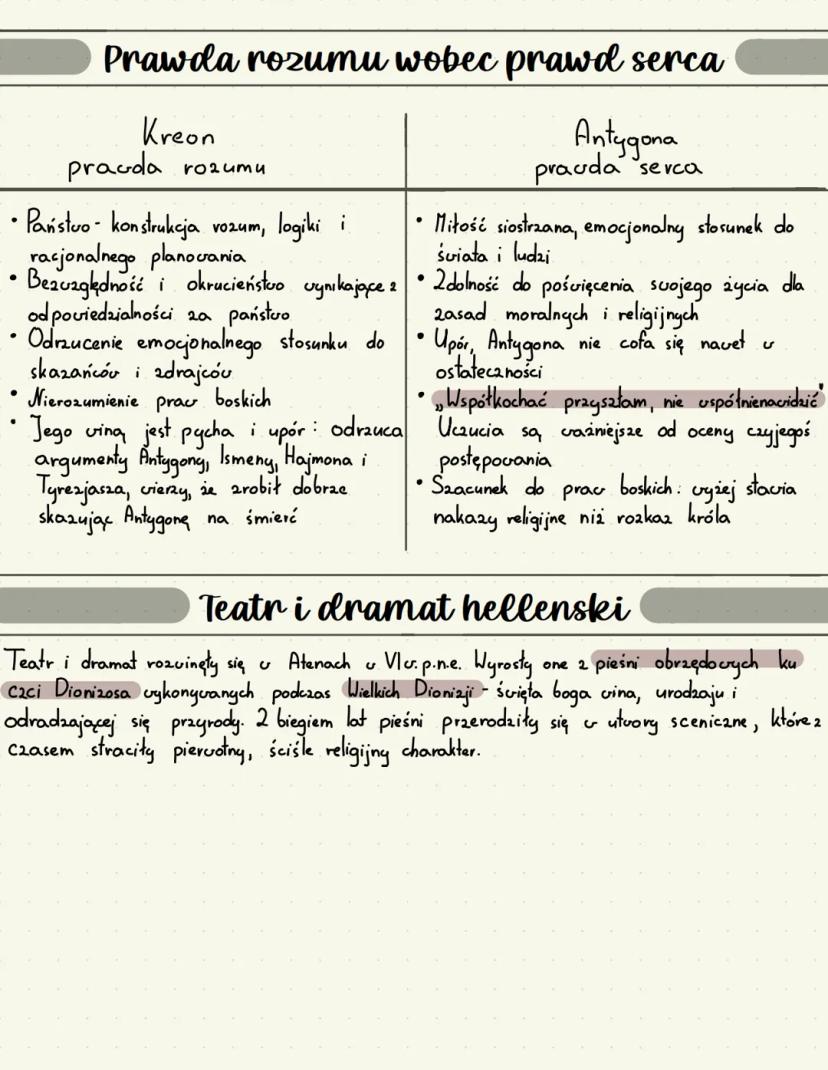 Prawda rozumu wobec prawd serca
Kreon
prawda rozumu
• Państwo - konstrukcja rozum, logiki i
racjonalnego planowania
• Bezwzględność i okrucieństwo wynikające z
odpowiedzialności za państwo
• Odrzucenie emocjonalnego stosunku do
skazańców i zdrajców
• Nierozumienie praw boskich
• Jego winą jest pycha i upór: odrzuca
argumenty Antygony, Ismeny, Hajmona i
Tyrezjasza, wierzy, że zrobił dobrze
skazując Antygonę na śmierć
Antygona
prawda serca
• Miłość siostrzana, emocjonalny stosunek do
świata i ludzi
• Zdolność do poświęcenia swojego życia dla
zasad moralnych i religijnych
• Upór, Antygona nie cofa się nawet w
ostateczności
• „Współkochać przyszłam, nie współnienawidzić"
Uczucia są ważniejsze od oceny czyjegoś
postępowania
• Szacunek do praw boskich: wyżej stawia
nakazy religijne niż rozkaz króla
Teatr i dramat hellenski
Teatr i dramat rozwinęły się w Atenach w VI w. p.n.e. Wyrosły one z pieśni obrzędowych ku
czci Dionizosa wykonywanych podczas Wielkich Dionizji - święta boga wina, urodzaju i
odradzającej się przyrody. Z biegiem lat pieśni przerodziły się w utwory sceniczne, które z
czasem straciły pierwotny, ściśle religijny charakter.